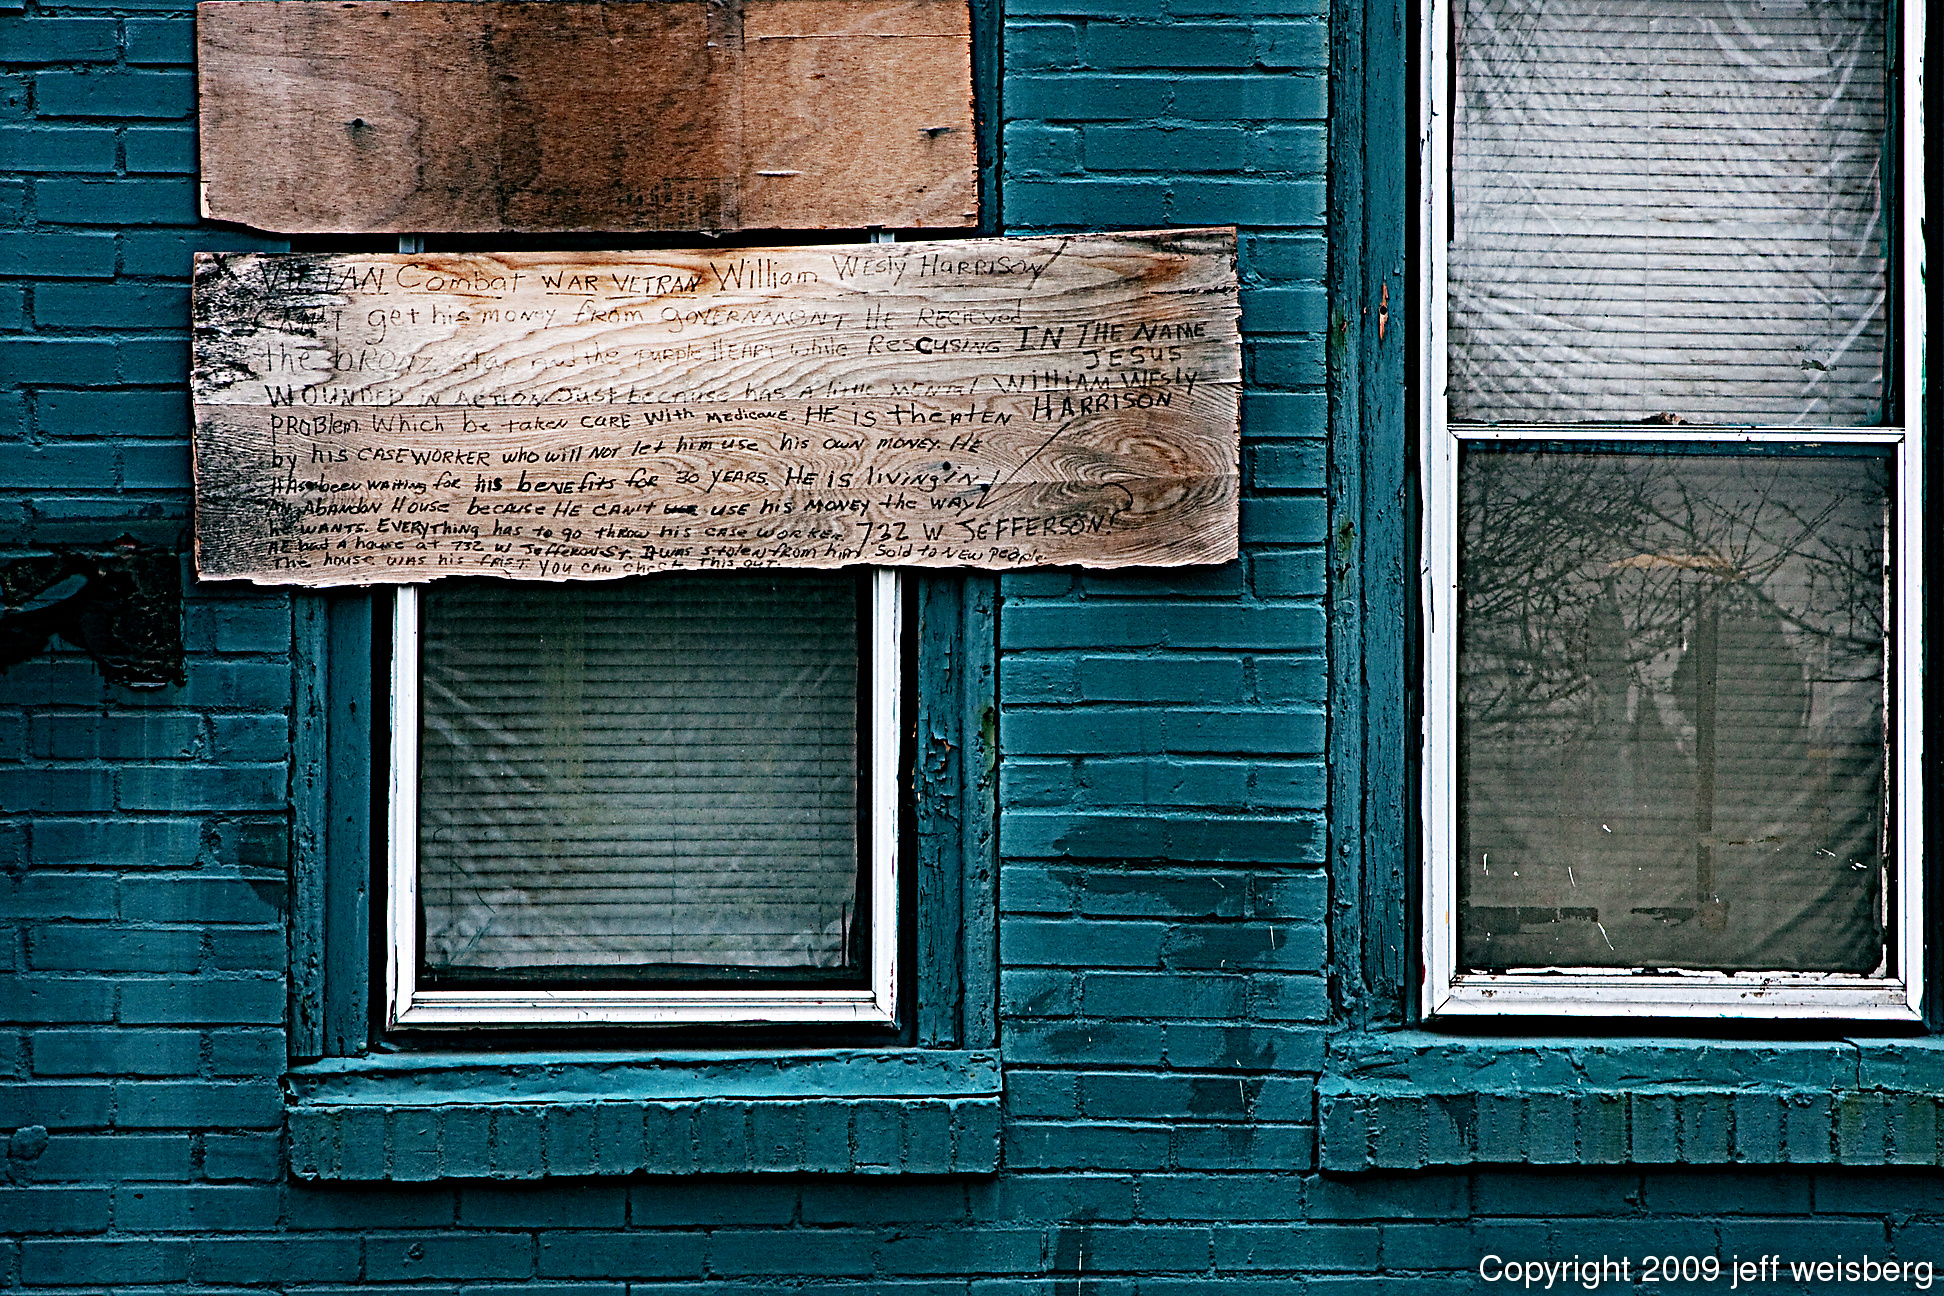 VIETAN Combat WAR VETRAN William Wesly HARRISON
CAN'T get his money from GOVERNMENT HE RECIEVED
the bRONZ star and the purple HEART while RESCUSING IN THE NAME
JESUS
WOUNDED IN ACTION Just because has A little MENTAL William WESly
PROBlem Which be taken CARE With MEDICANE. HE is theATEN HARRISON
by his CASEWORKER who will NOT let him use his own MONEY. HE
HAS been WAITING for his benefits for 30 YEARS. HE is living in
AN AbANDON House because HE CAN'T use his MONEY the WAY
he WANTS. EVERYthing has to go throw his CASE WORKER. 732 W JEFFERSON!
HE had A house at 732 W JeffeRoNST. It was stolen from him Sold to NEW People
The house WAS his FRIST YOU CAN Check This out
Copyright 2009 jeff weisberg